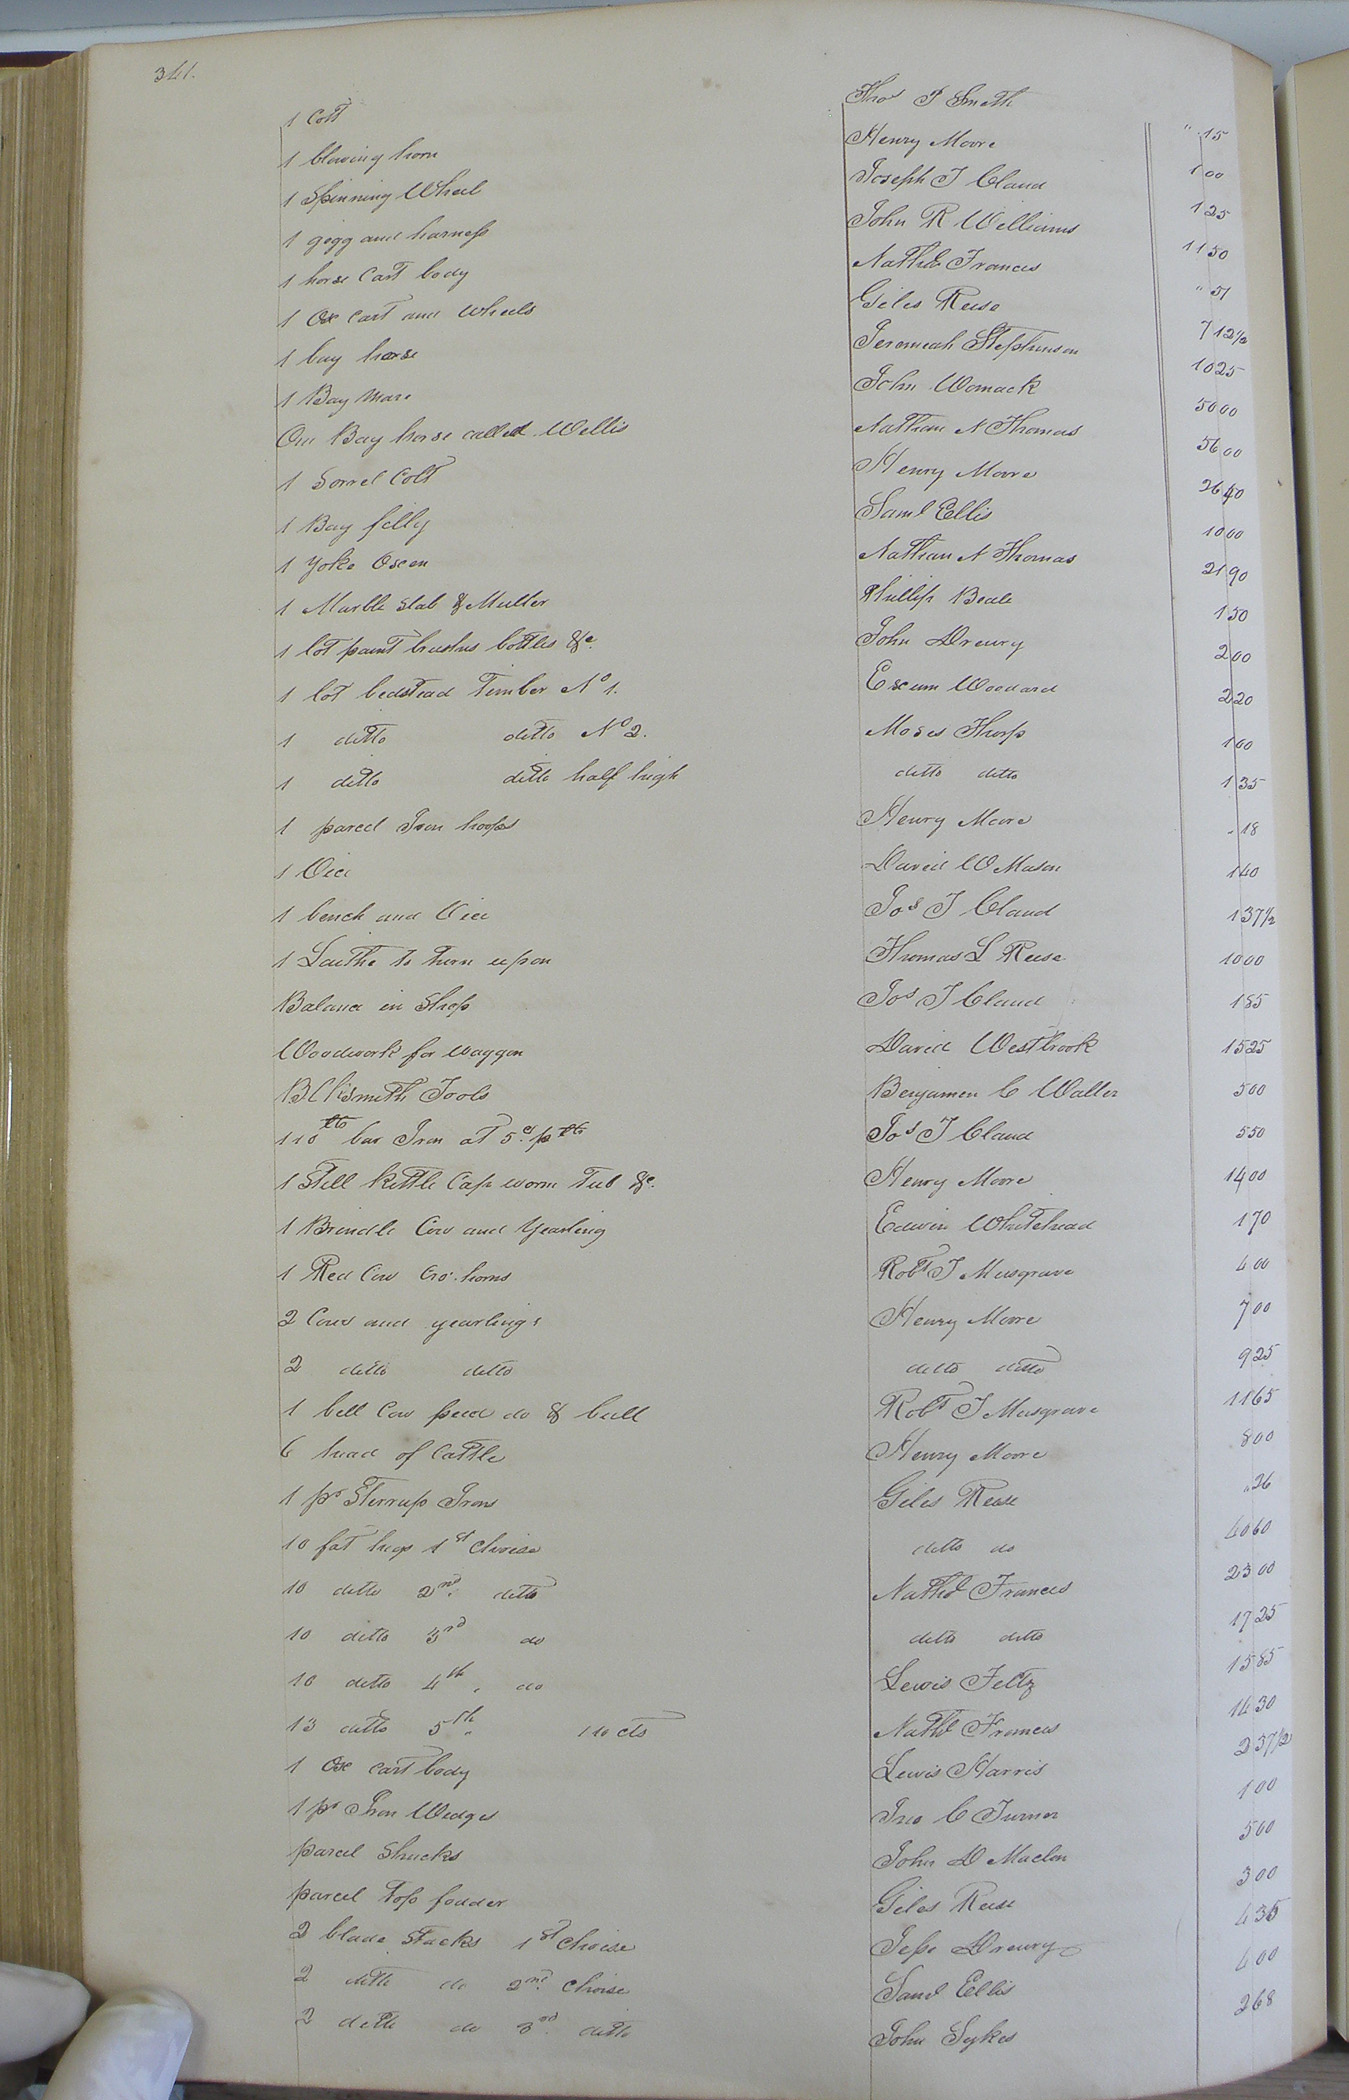 341.
1 Colt Thos P Smith " 15
1 blowing horn Henry Moore 1 00
1 Spinning Wheel Joseph T Claud 1 25
1 gigg and harness John R Williams 11 50
1 horse Cart body Nathl Francis " 51
1 Ox Cart and Wheels Giles Reese 7 12½
1 bay horse Jeremiah Stephenson 10 25
1 Bay Mare John Womack 50 00
One Bay horse called Willis Nathan N Thomas 56 00
1 Sorrel Colt Henry Moore 26 40
1 Bay filly Saml Ellis 10 00
1 Yoke Oxen Nathan N Thomas 21 90
1 Marble slab & Muller Phillip Beale 1 50
1 lot paint brushes bottles &c. John Drewry 2 00
1 lot bedstead Timber No 1. Exum Woodard 2 20
1 ditto ditto No 2. Moses Thorp 1 00
1 ditto ditto half high ditto ditto 1 35
1 parcel Iron hoops Henry Moore " 18
1 Vice David W Mason 1 40
1 bench and Vice Jos T Claud 1 37½
1 Laithe to turn upon Thomas L Reese 10 00
Balance in Shop Jos T Claud 1 85
Woodwork for waggon David Westbrook 15 25
BlkSmith Tools Benjamen C Waller 5 00
110 lb bar Iron at 5 cs p lb Jos T Claud 5 50
1 Still Kettle Cap worm Tub &c. Henry Moore 14 00
1 Brindle Cow and Yearling Edwin Whitehead 1 70
1 Red Cow Cro. horns Robt T Musgrave 4 00
2 Cows and yearlings Henry Moore 7 00
2 ditto ditto ditto ditto 9 25
1 bell Cow pied do & bull Robt T Musgrave 11 65
6 head of Cattle Henry Moore 8 00
1 pr Stirrup Irons Giles Reese " 26
10 fat hogs 1st Choise ditto do 40 60
10 ditto 2nd. ditto Nathl Francis 23 00
10 ditto 3rd do ditto ditto 17 25
10 ditto 4th " do Lewis Feltz 15 85
13 ditto 5th " 110 cts Nathl Francis 14 30
1 Ox cart body Lewis Harris 2 37½
1 pr Iron Wedges Jno C Turner 1 00
parcel Shucks John D Maclin 5 00
parcel Top fodder Giles Reese 3 00
2 blade Stacks 1st Choise Jesse Drewry 4 35
2 ditto do 2nd. Choise Saml Ellis 4 00
2 ditto do 3rd. ditto John Sykes 2 68